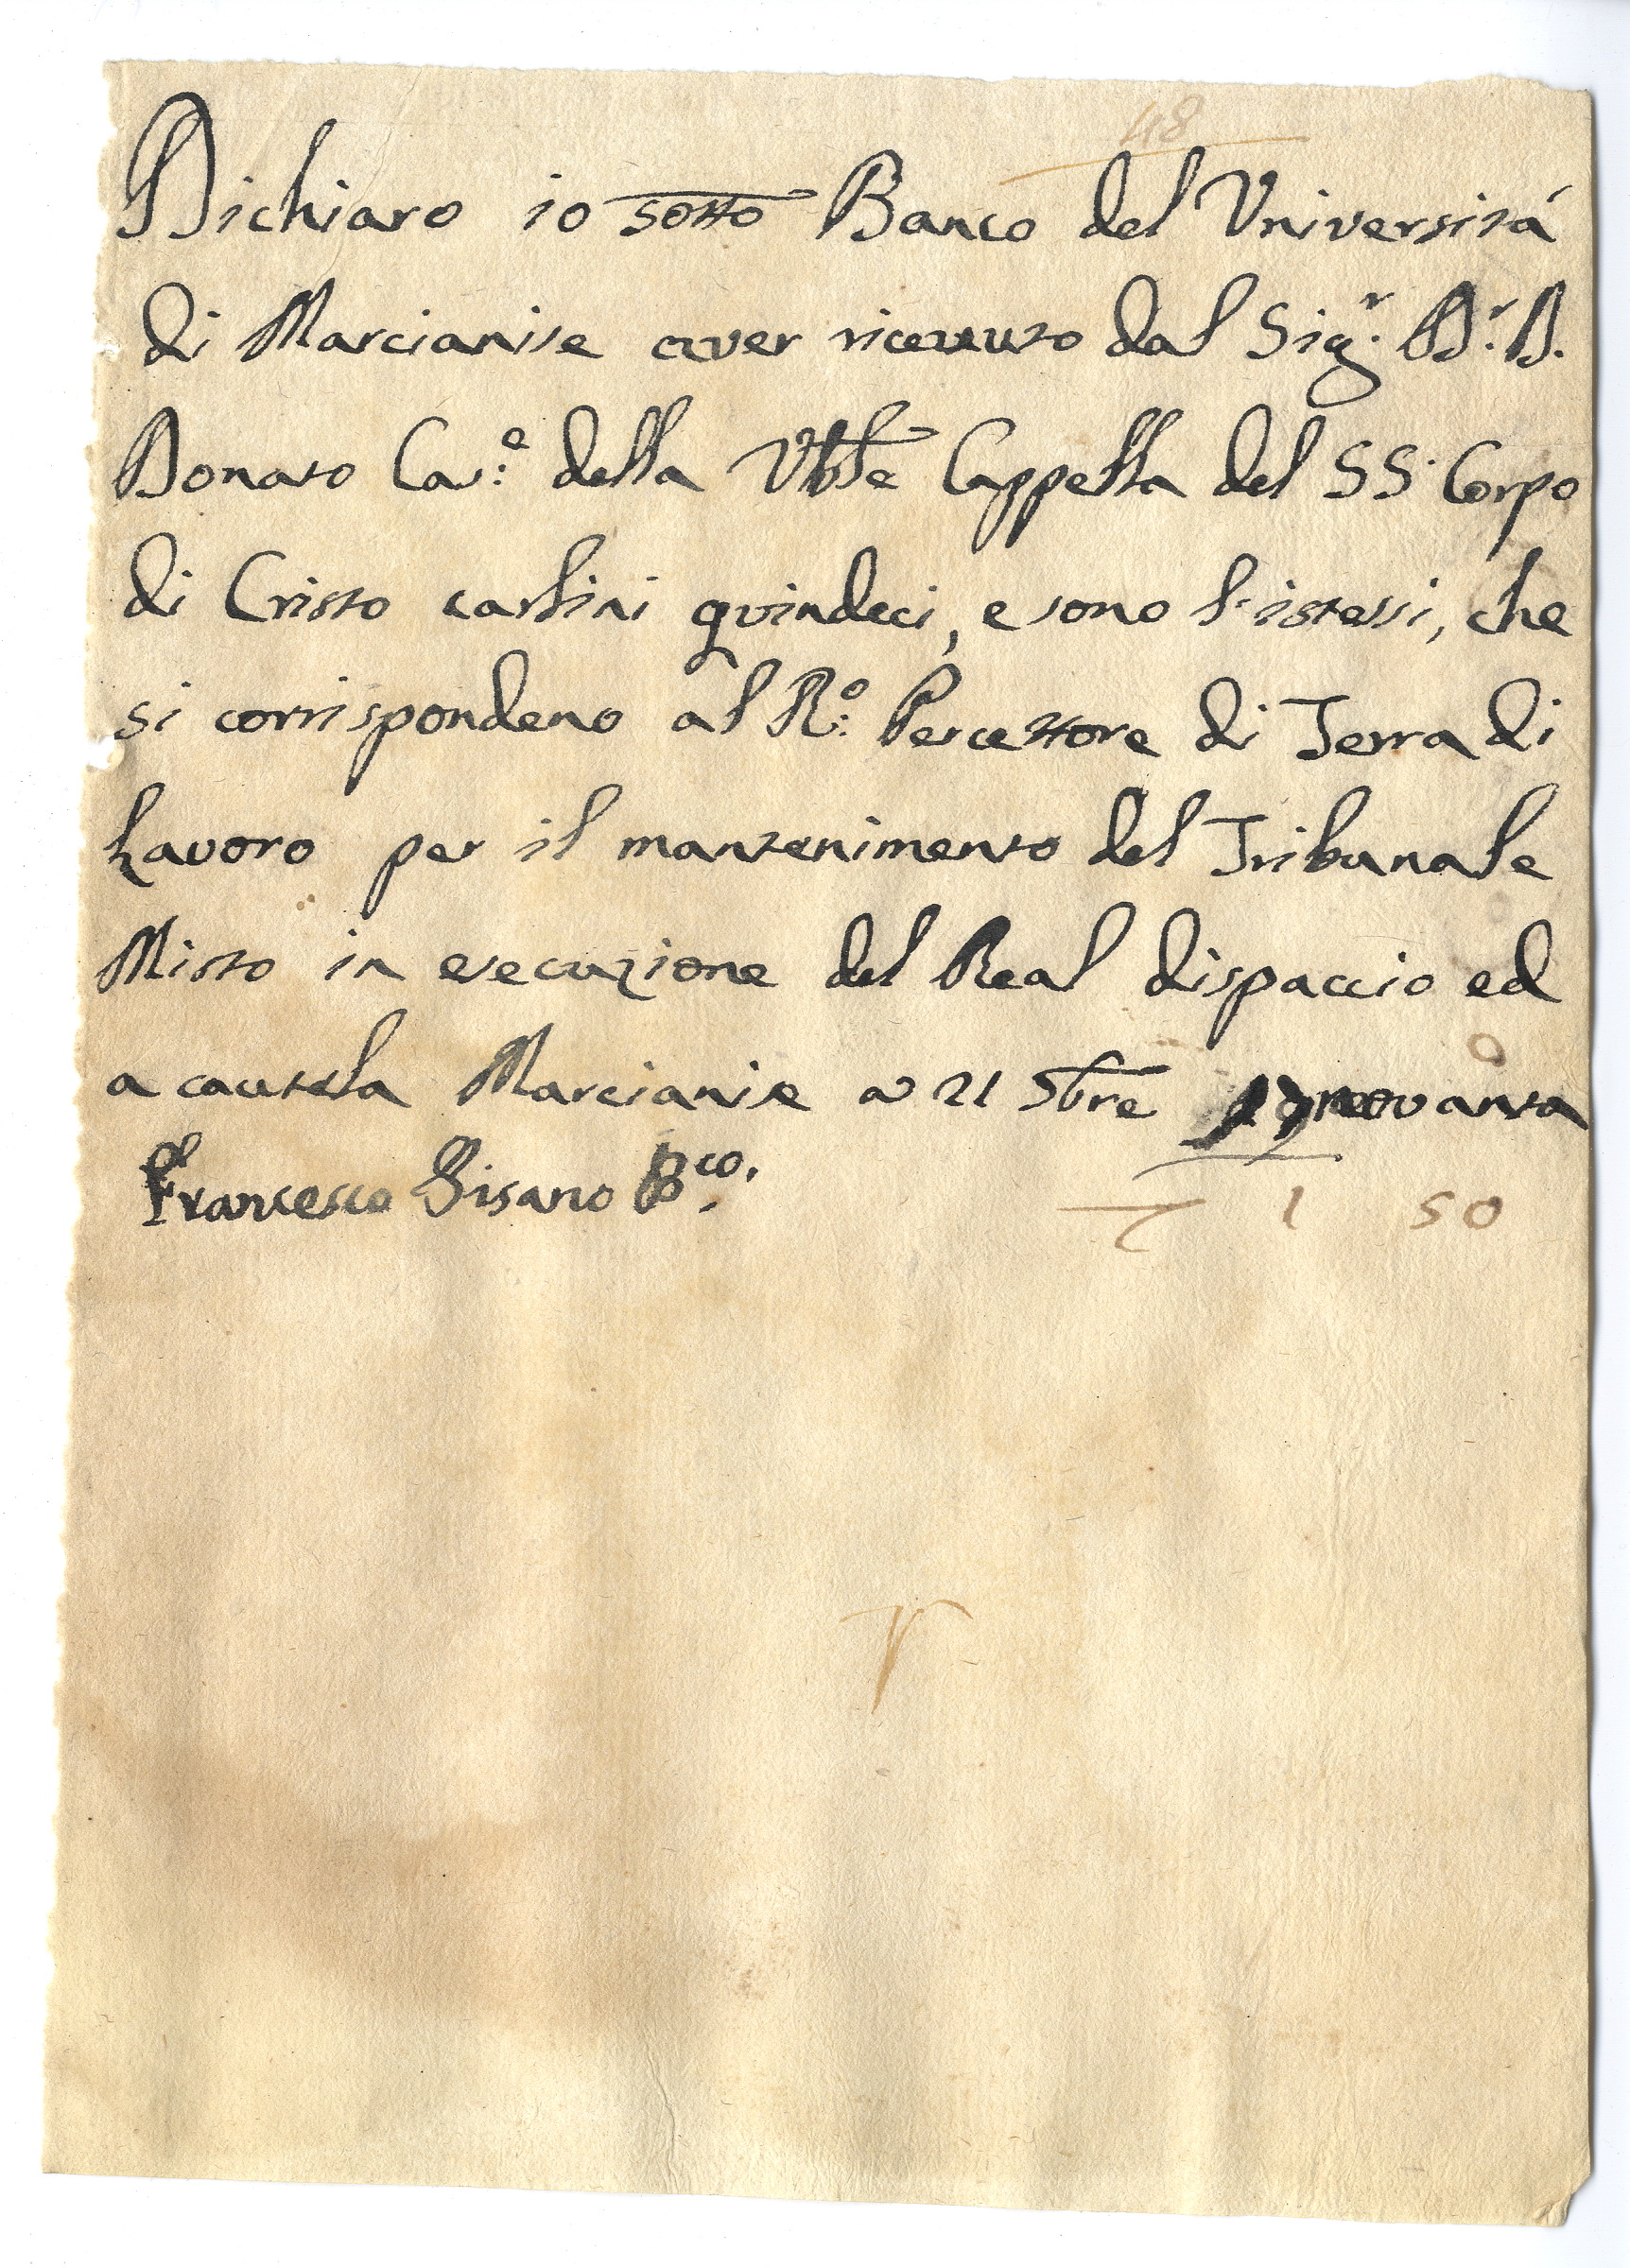 48
Dichiaro io sotto Banco del Università
di Marcianise aver ricevuto dal Sig.r D.r D.
Donato Ca:e della Vble Cappella del SS. Corpo
di Cristo carlini quindeci, e sono l'istessi, che
si corrispondeno al R:o Percettore di Terra di
Lavoro per il mantenimento del Tribunale
Misto in esecuzione del Real dispaccio ed
a cautela Marcianise a 21 Sbre novanta
Francesco Bco.
1 50